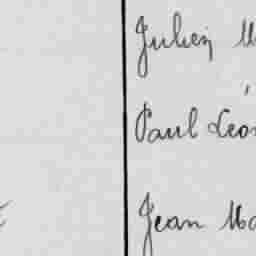 Julien M
Paul Léon
Jean Ma